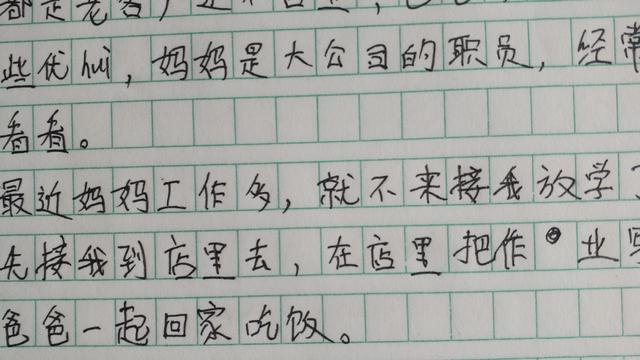 都是老客户
些优hui，妈妈是大公司的职员，经常
看看。
最近妈妈工作多，就不来接我放学了
先接我到店里去，在店里把作业写
爸爸一起回家吃饭。